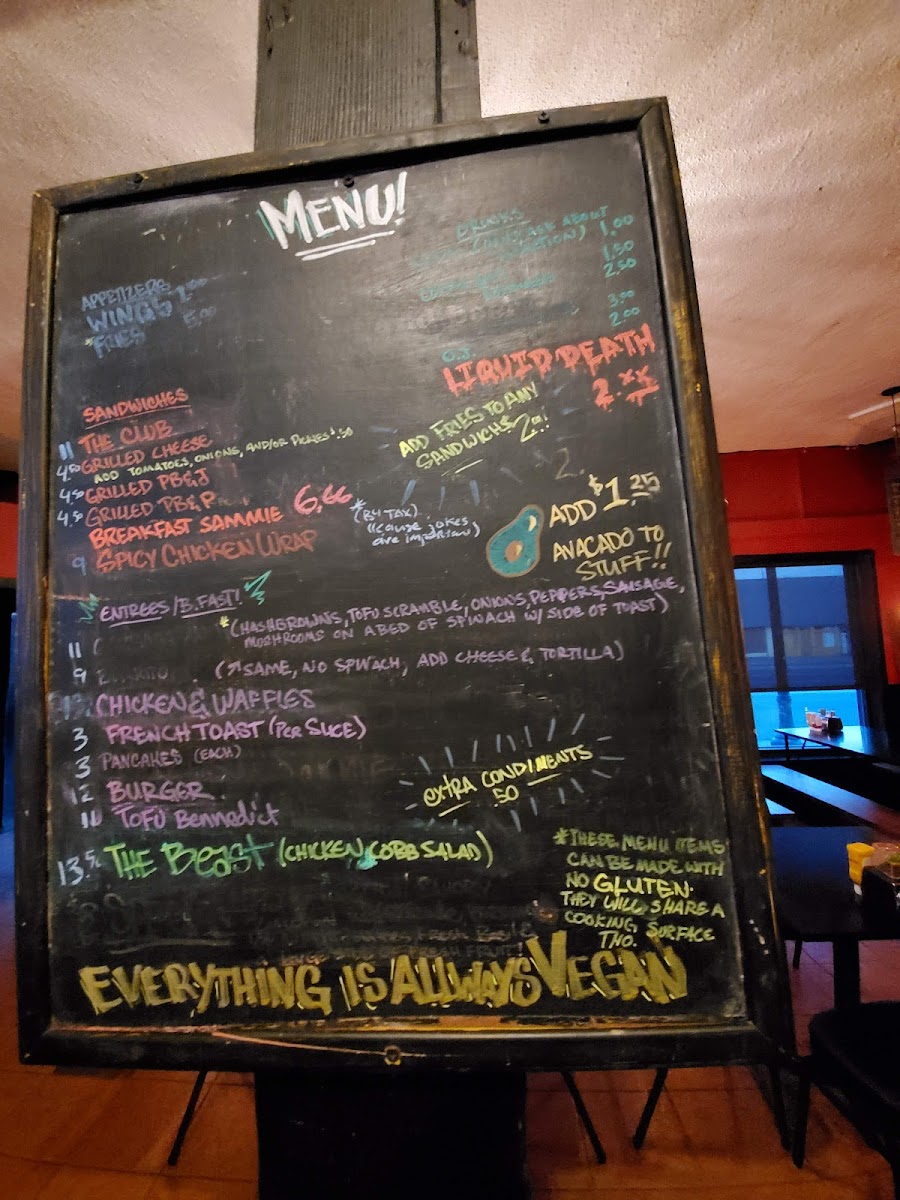 MENU!
APPETIZERS
WINGS
FRIES 5.00
DRINKS
ASK ABOUT
1.00
1.50
2.50
3.00
O.J. 2.00
LIQUID DEATH
2.XX
SANDWICHES
11 THE CLUB
4.50 GRILLED CHEESE
ADD TOMATOES, ONIONS, AND/OR PICKLES .50
4.50 GRILLED PB&J
4.50 GRILLED PB&P
BREAKFAST SAMMIE 6.66
*(B4 TAX)
"(CAUSE JOKES
ARE IMPORTANT)
9 SPICY CHICKEN WRAP
ADD FRIES TO ANY
SANDWICH 2.00!
ADD $1.25
AVACADO TO
STUFF!!
ENTREES/B.FAST!
*(HASHBROWNS, TOFU SCRAMBLE, ONIONS, PEPPERS, SAUSAGE,
MUSHROOMS ON A BED OF SPINACH W/ SIDE OF TOAST)
11
9 (↗SAME, NO SPINACH, ADD CHEESE & TORTILLA)
CHICKEN & WAFFLES
3 FRENCH TOAST (PER SLICE)
3 PANCAKES (EACH)
12 BURGER
11 TOFU BENNEDICT
EXTRA CONDIMENTS
.50
13.50 THE BEAST (CHICKEN COBB SALAD)
*THESE MENU ITEMS
CAN BE MADE WITH
NO GLUTEN.
THEY WILL SHARE A
COOKING SURFACE
THO.
EVERYTHING IS ALLWAYS VEGAN